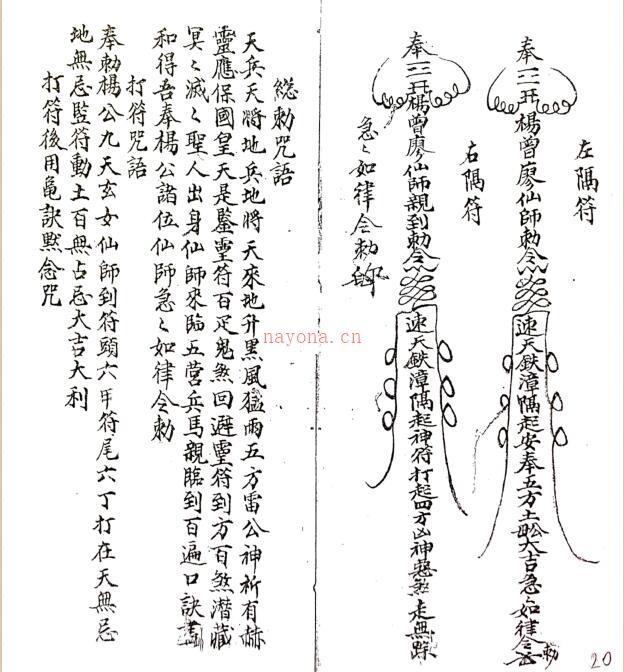 左隅符
奉 三 楊曾廖仙師勅令
速天鉄漳隔起安奉五方土 大吉急〻如律令勅
右隅符
奉 三 楊曾廖仙師親到勅令
速天鉄漳隔起神符打起四方凶神惡煞走無踪
急〻如律令勅
総勅咒語
天兵天將地兵地將天來地升黑風猛雨五方雷公神祈有赫
靈應保國皇天是鑒靈符百疋鬼煞回避靈符到方百煞潛藏
冥〻滅〻聖人出身仙師來臨五营兵馬親臨到百遍口訣
和得吾奉楊公諸位仙師急〻如律令勅
打符咒語
奉勅楊公九天玄女仙師到符頭六甲符尾六丁打在天無忌
地無忌監符動土百無占忌大吉大利
打符後用龟訣默念咒
nayona.cn
20